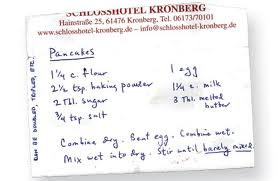 SCHLOSSHOTEL KRONBERG
Hainstraße 25, 61476 Kronberg, Tel. 06173/70101
www.schlosshotel-kronberg.de – info@schlosshotel-kronberg.de
Pancakes
1 1/4 c. flour
2 1/2 tsp. baking powder
2 Tbl. sugar
3/4 tsp. salt
1 egg
1 1/4 c. milk
3 Tbl. melted
butter
Combine dry. Beat egg. Combine wet.
Mix wet into dry. Stir until barely mixed.
CAN BE DOUBLED, TRIPLED, ETC.